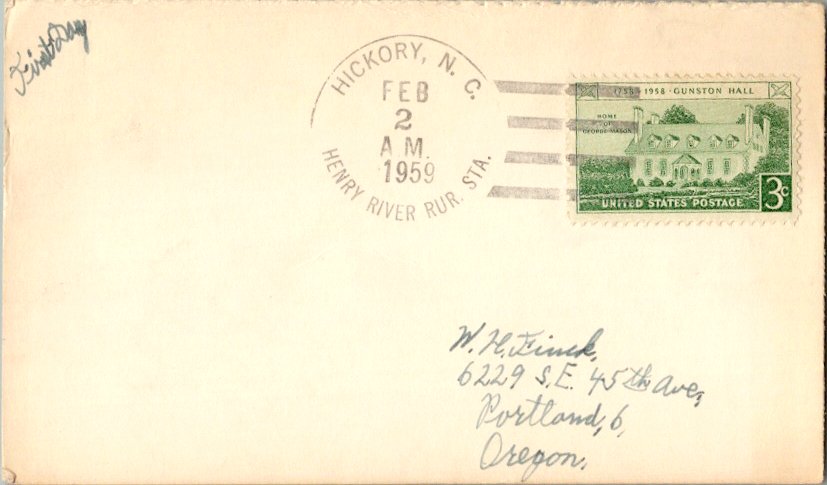 First Day
HICKORY, N. C.
FEB
2
A M.
1959
HENRY RIVER RUR. STA.
1758 · 1958 · GUNSTON HALL
HOME
OF
GEORGE MASON
UNITED STATES POSTAGE
3c
W. H. Finck,
6229 S.E. 45th Ave,
Portland, 6,
Oregon.